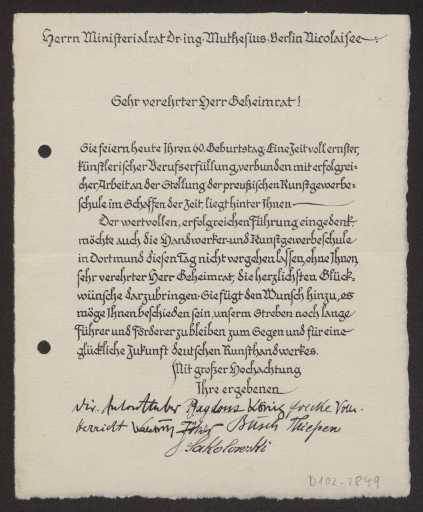 Herrn Ministerialrat Dr·ing·Muthesius·Berlin Nicolaisee
Sehr verehrter Herr Geheimrat!
Sie feiern heute Ihren 60. Geburtstag. Eine Zeit voll ernster,
künstlerischer Berufserfüllung, verbunden mit erfolgrei-
cher Arbeit an der Stellung der preußischen Kunstgewerbe-
schule im Schaffen der Zeit, liegt hinter Ihnen
Der wertvollen, erfolgreichen Führung eingedenk
möchte auch die Handwerker- und Kunstgewerbeschule
in Dortmund diesen Tag nicht vergehen lassen, ohne Ihnen,
sehr verehrter Herr Geheimrat, die herzlichsten Glück-
wünsche darzubringen. Sie fügt den Wunsch hinzu, es
möge Ihnen beschieden sein, unserm Streben noch lange
Führer und Förderer zu bleiben zum Segen und für eine
glückliche Zukunft deutschen Kunsthandwerkes.
Mit großer Hochachtung
Ihre ergebenen
Dir. König
Busch Thiessen
D102-2849